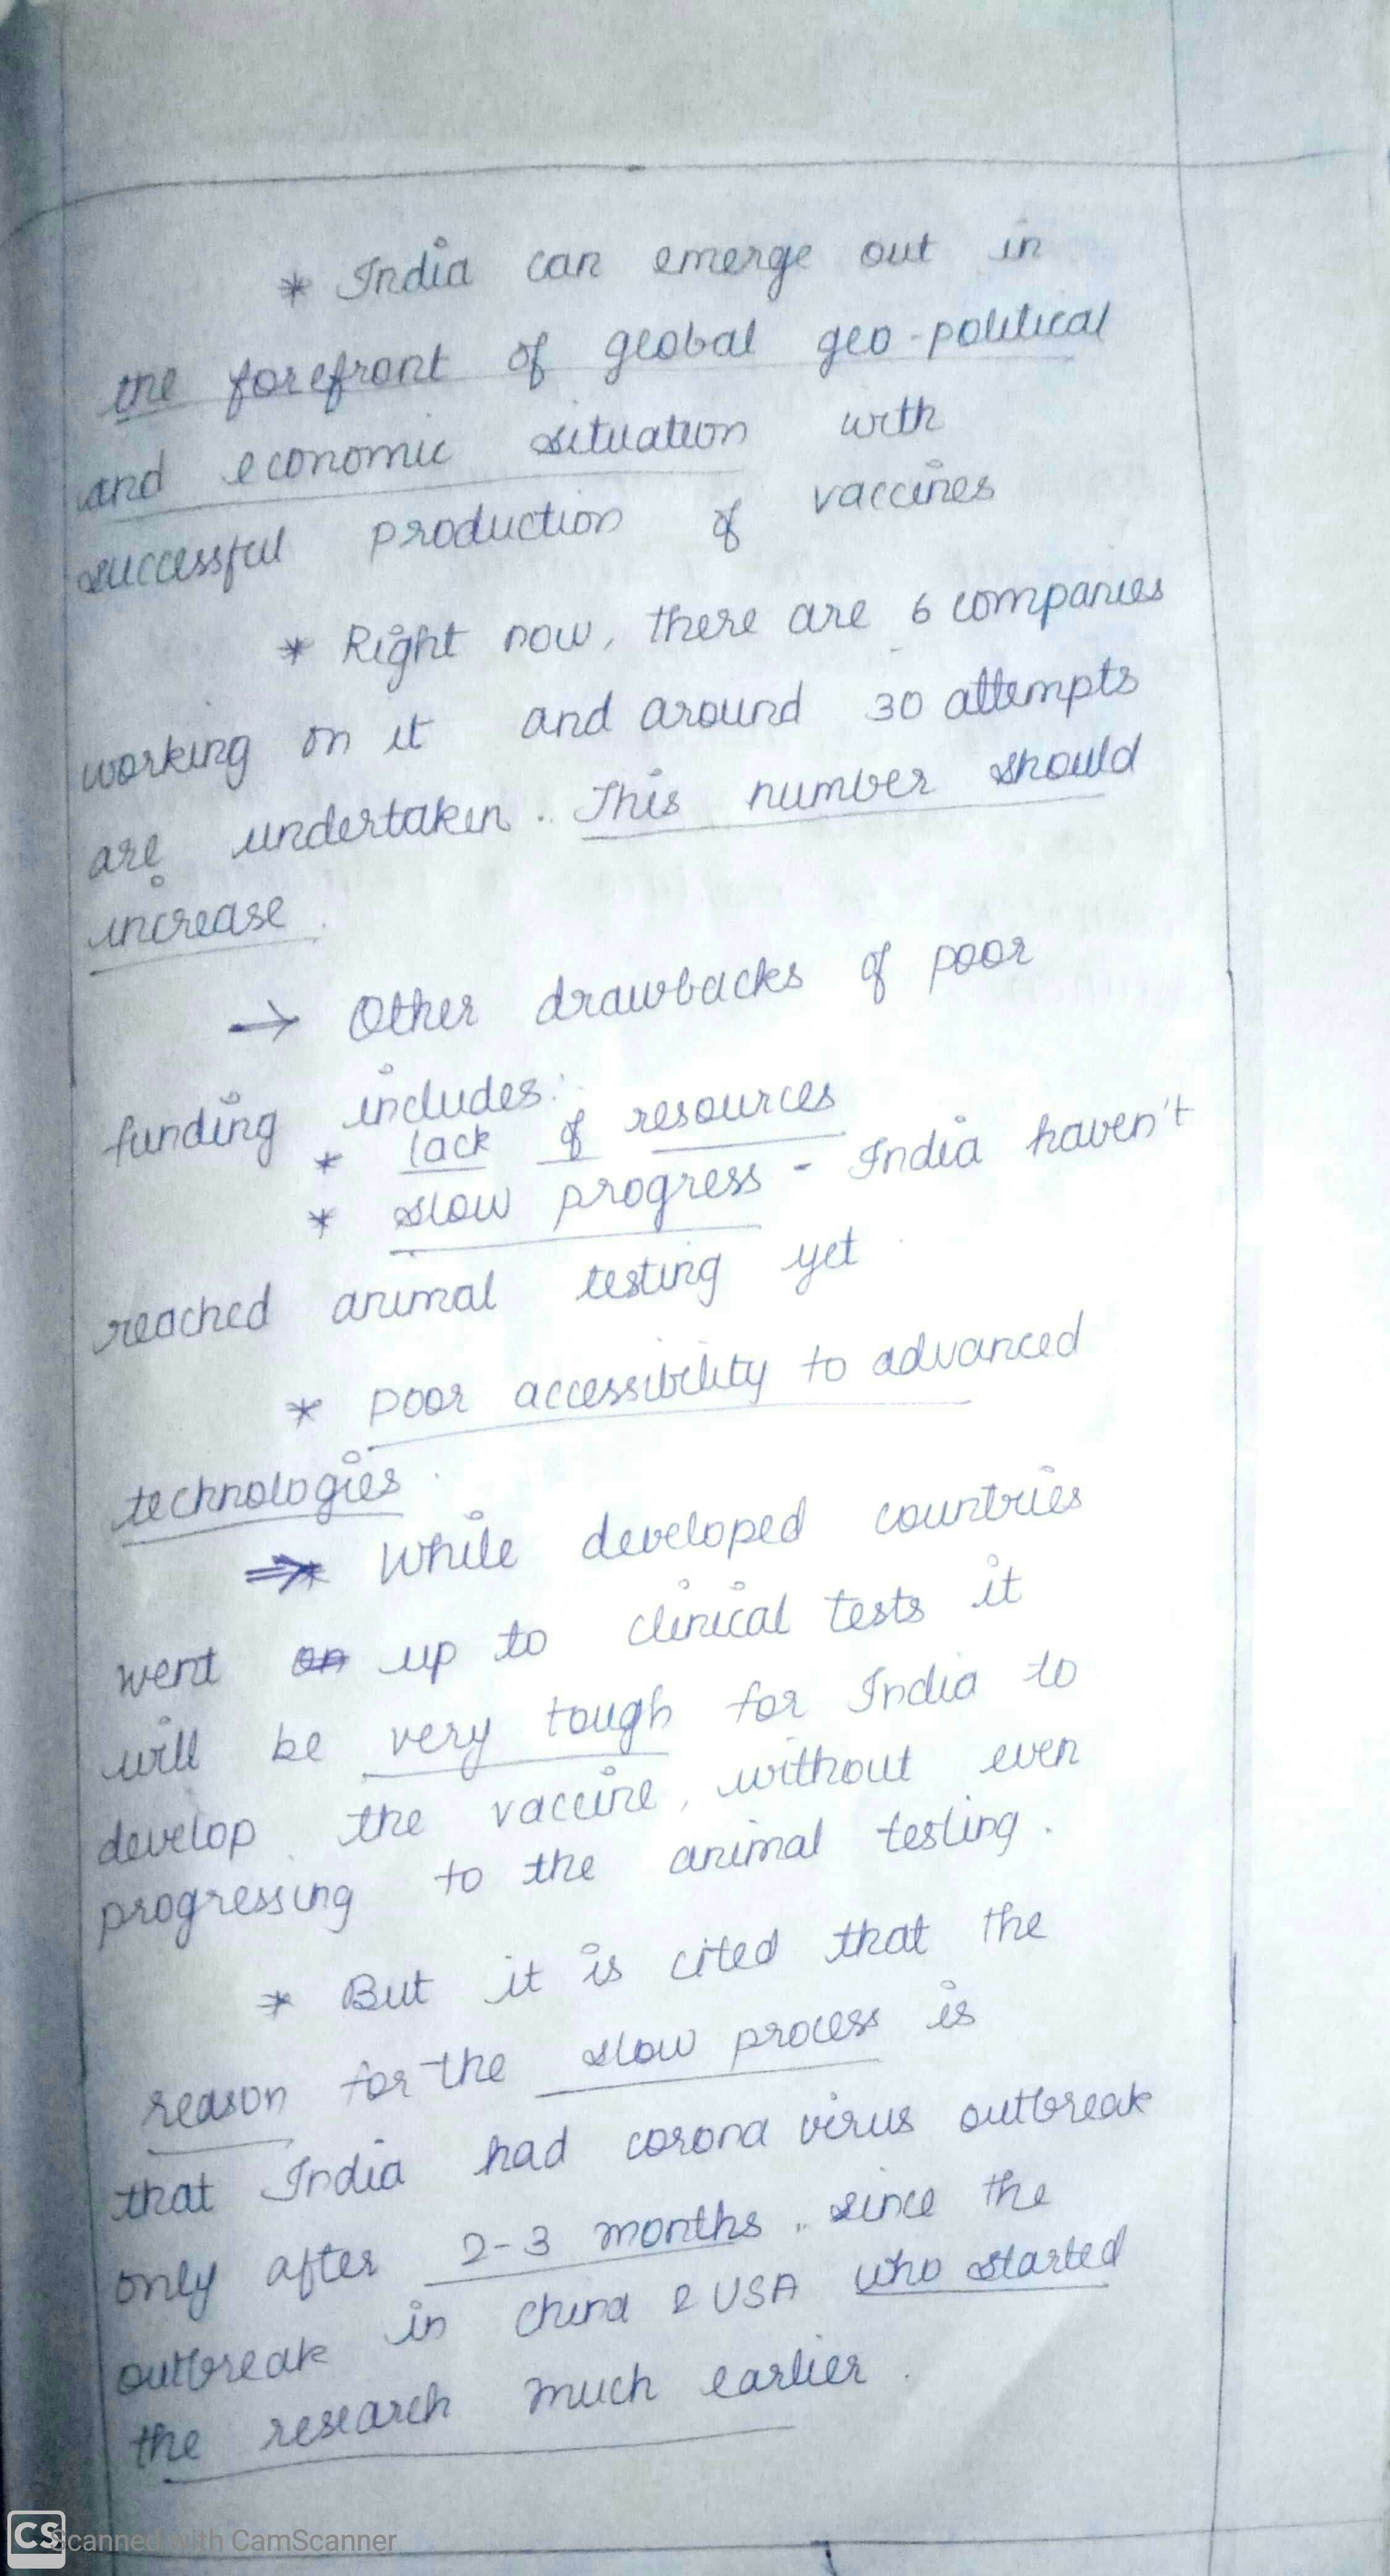 * India can emerge out in
the forefront of geobal geo-political
and economic situation with
successful production of vaccines
* Right now, there are 6 companies
working on it and around 30 attempts
are undertaken. This number should
increase.
→ Other drawbacks of poor
funding includes:
* lack of resources
* slow progress - India haven't
reached animal testing yet
* poor accessibility to advanced
technologies.
⇒ While developed countries
went on up to clinical tests it
will be very tough for India to
develop the vaccine, without even
progressing to the animal testing.
* But it is cited that the
reason for the slow process is
that India had corona virus outbreak
only after 2-3 months, since the
outbreak in china & USA who started
the research much earlier.
CS Scanned with CamScanner